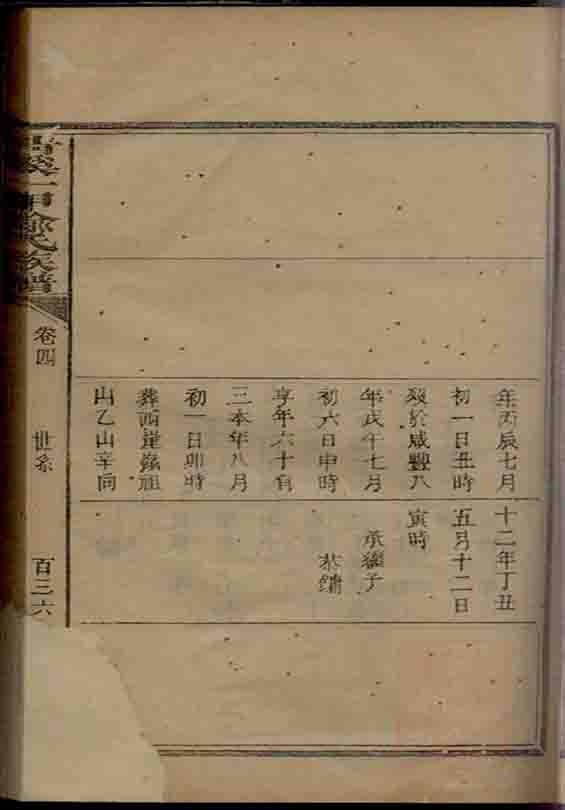 年丙辰七月
初一日丑時
歿於咸豐八
年戊午七月
初六日申時
享年六十有
三本年八月
初一日卯時
葬西祖
山乙山辛向
十二年丁丑
五月十二日
寅時
承繼子
溪一甲徐氏族譜
卷四
世系
百三六